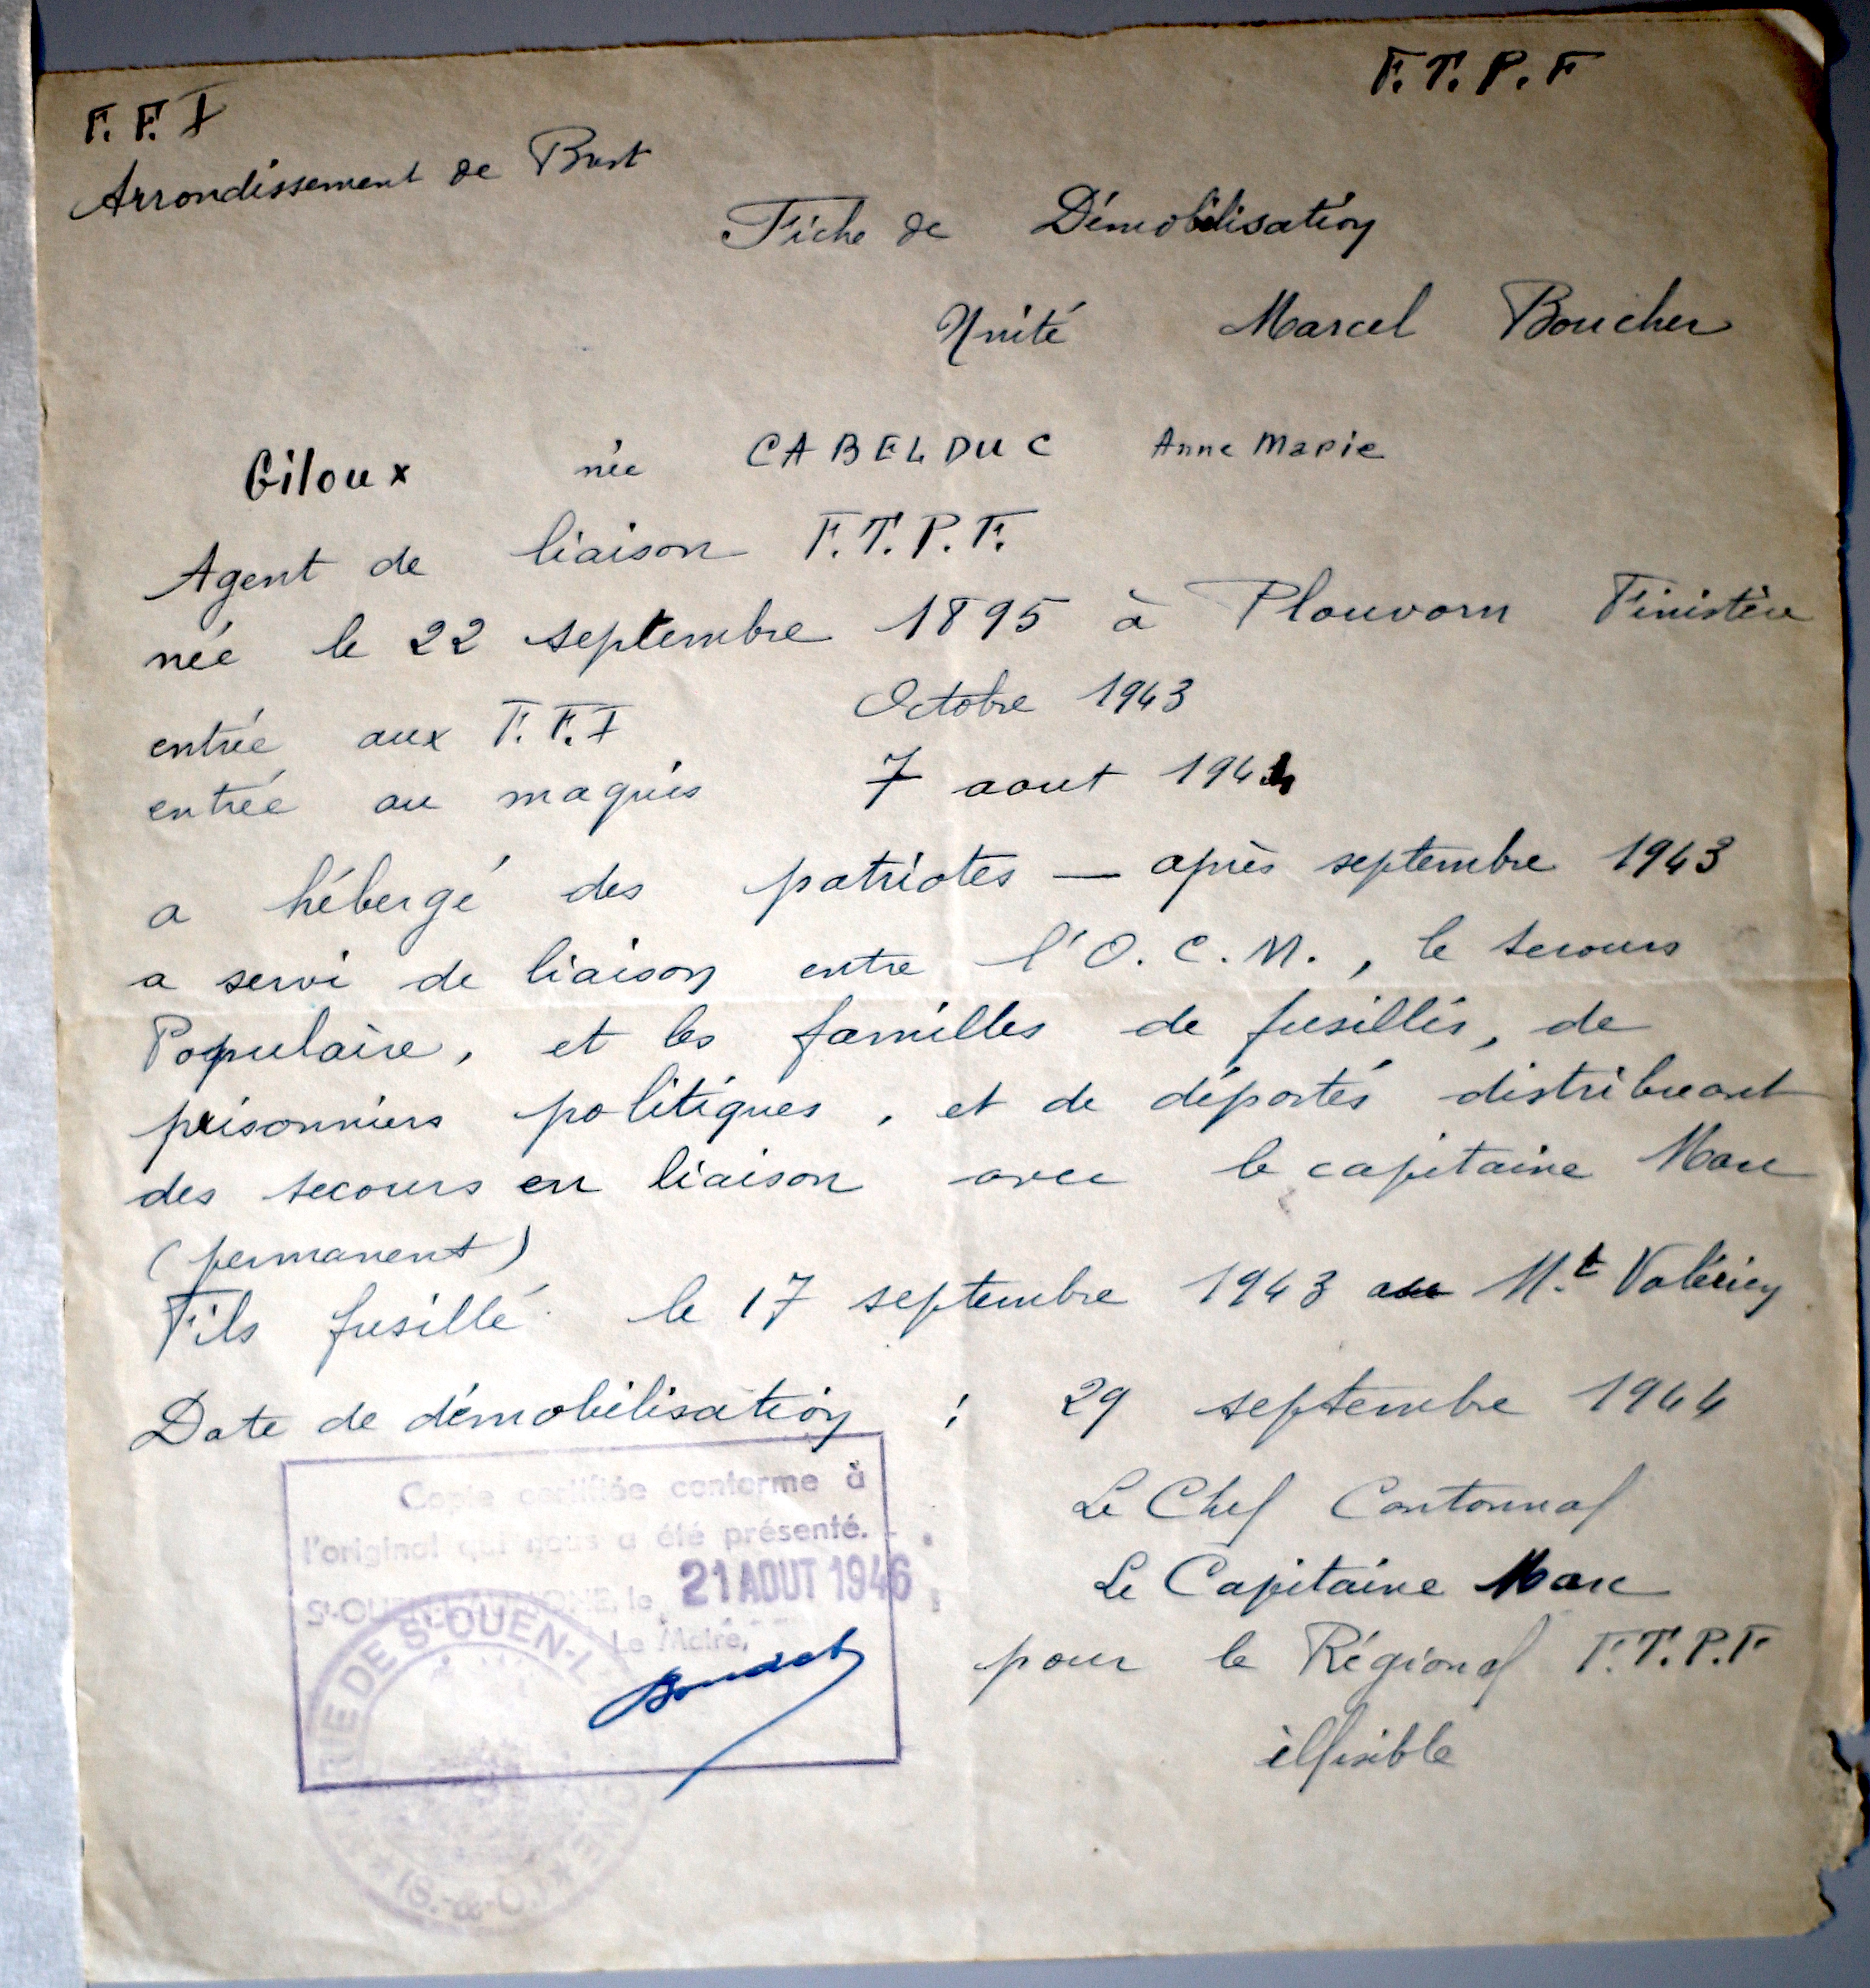 F.T.P.F
F.F.I
Arrondissement de Brest
Fiche de Démobilisation
Unité Marcel Boucher
Giloux née CABELDUC Anne Marie
Agent de liaison F.T.P.F.
née le 22 septembre 1895 à Plouvorn Finistère
entrée aux F.F.I Octobre 1943
entrée au maquis 7 aout 1944
a hébergé des patriotes — après septembre 1943
a servi de liaison entre l'O.C.M., le secours
Populaire, et les familles de fusillés, de
prisonniers politiques, et de déportés distribuant
des secours en liaison avec le capitaine Marc
(permanent)
Fils fusillé le 17 septembre 1943 au M.t Valérien
Date de démobilisation : 29 septembre 1944
Le Chef Cantonnal
Le Capitaine Marc
pour le Régional F.T.P.F
illisible
Copie certifiée conforme à
l'original qui nous a été présenté.
St-OUEN-L'AUMONE, le 21 AOUT 1946
Le Maire,
MAIRIE DE St-OUEN-L'AUMONE * (S.-&-O.) *